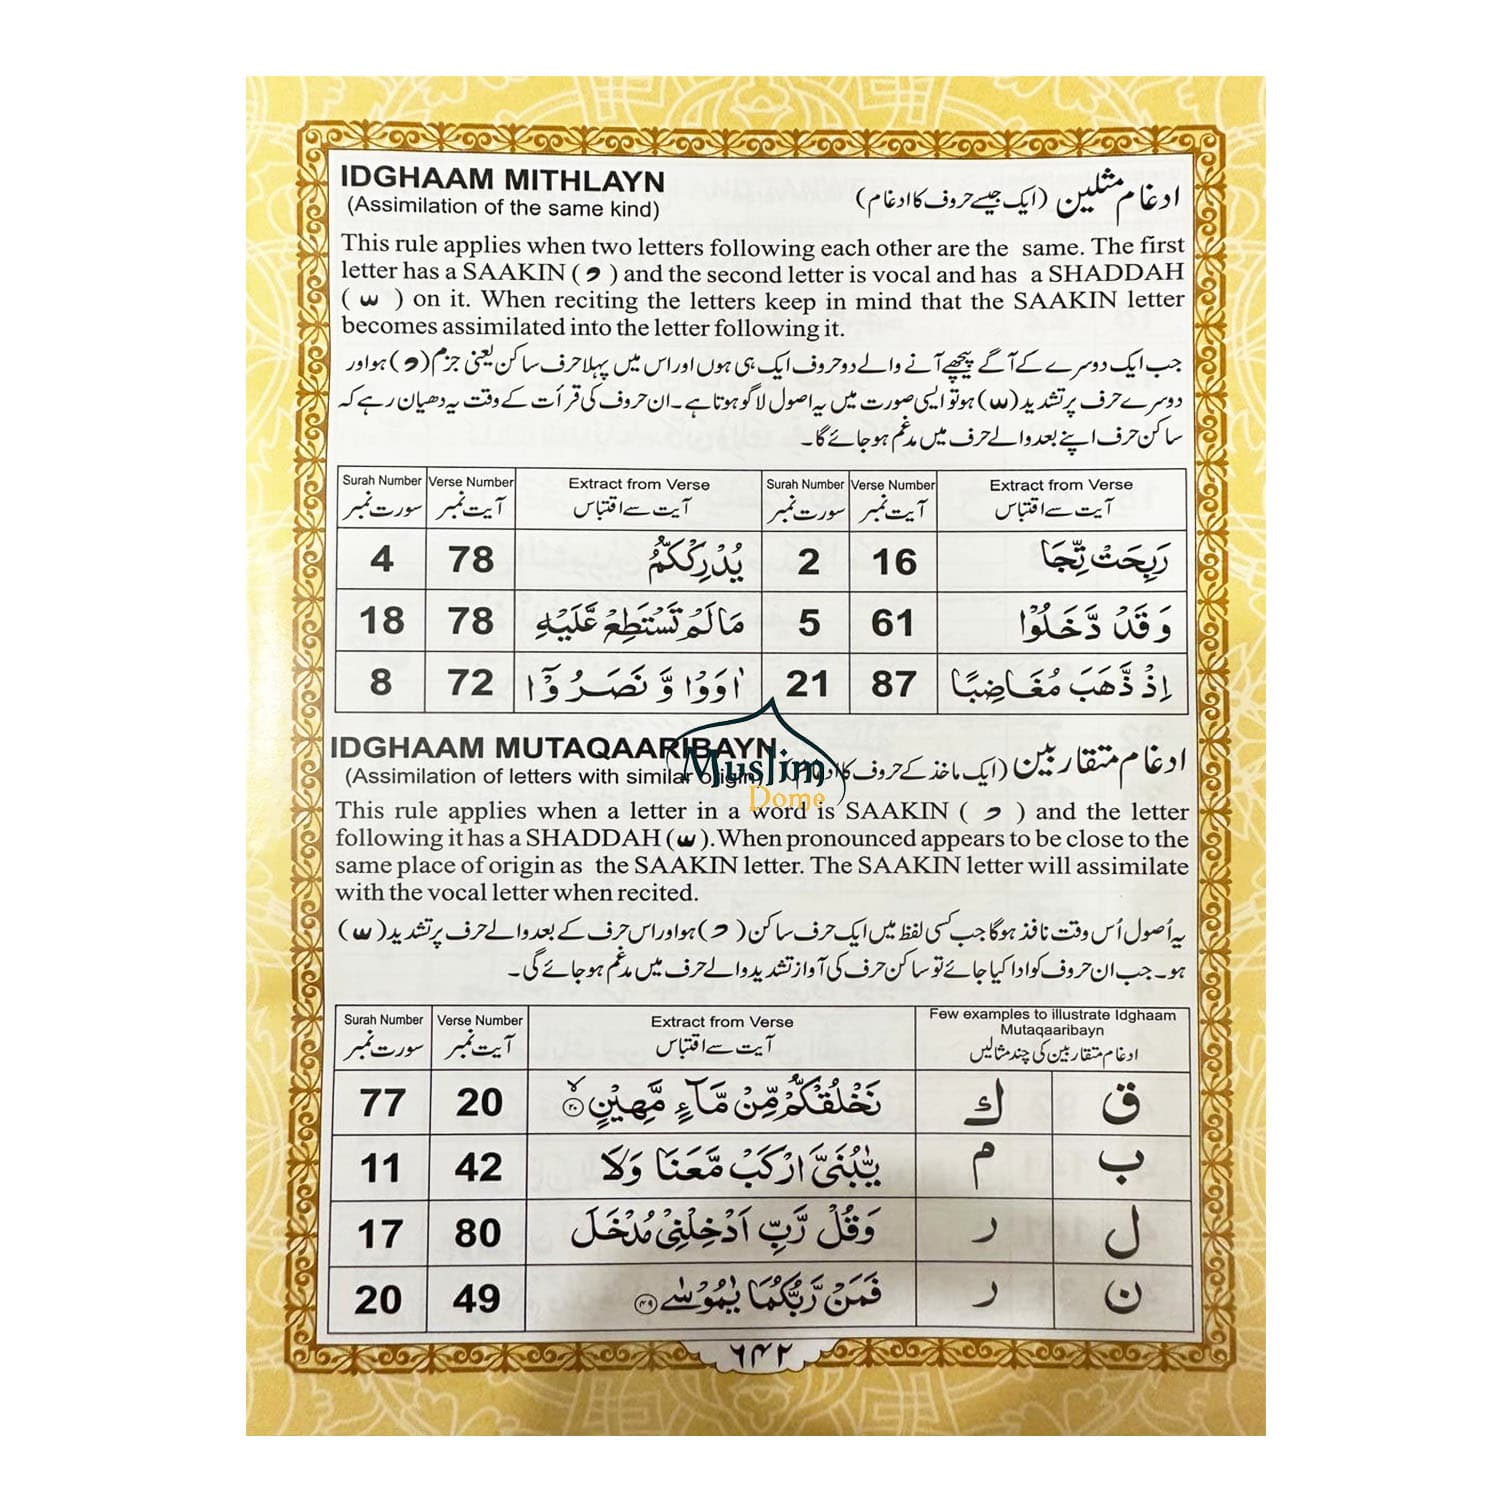 IDGHAAM MITHLAYN
ادغام مثلین (ایک جیسے حروف کا ادغام)
(Assimilation of the same kind)
This rule applies when two letters following each other are the same. The first
letter has a SAAKIN ( ) and the second letter is vocal and has a SHADDAH
( ) on it. When reciting the letters keep in mind that the SAAKIN letter
becomes assimilated into the letter following it.
جب ایک دوسرے کے آگے پیچھے آنے والے دو حروف ایک ہی ہوں اور اس میں پہلا حرف ساکن یعنی جزم ( ) ہو اور
دوسرے حرف پر تشدید ( ) ہو تو ایسی صورت میں یہ اصول لاگو ہوتا ہے۔ ان حروف کی قرأت کے وقت یہ دھیان رہے کہ
ساکن حرف اپنے بعد والے حرف میں مدغم ہو جائے گا۔
Surah Number Verse Number Extract from Verse Surah Number Verse Number Extract from Verse
سورت نمبر آیت نمبر آیت سے اقتباس سورت نمبر آیت نمبر آیت سے اقتباس
4 78 يُدْرِكْكُّمُ 2 16 رَبِحَتْ تِّجَا
18 78 مَالَمْ تَسْتَطِعْ عَّلَيْهِ 5 61 وَقَدْ دَّخَلُوْا
8 72 اٰوَوْا وَّ نَصَرُوْٓا 21 87 اِذْ ذَّهَبَ مُغَاضِبًا
IDGHAAM MUTAQAARIBAYN
ادغام متقاربین (ایک ماخذ کے حروف کا ادغام)
(Assimilation of letters with similar origin)
Muslim
Dome
This rule applies when a letter in a word is SAAKIN ( ) and the letter
following it has a SHADDAH ( ).When pronounced appears to be close to the
same place of origin as the SAAKIN letter. The SAAKIN letter will assimilate
with the vocal letter when recited.
یہ اُصول اُس وقت نافذ ہوگا جب کسی لفظ میں ایک حرف ساکن ( ) ہو اور اس حرف کے بعد والے حرف پر تشدید ( )
ہو۔ جب ان حروف کو ادا کیا جائے تو ساکن حرف کی آواز تشدید والے حرف میں مدغم ہو جائے گی۔
Surah Number Verse Number Extract from Verse Few examples to illustrate Idghaam
Mutaqaaribayn
سورت نمبر آیت نمبر آیت سے اقتباس ادغام متقاربین کی چند مثالیں
77 20 نَخْلُقْكُّمْ مِّنْ مَّآءٍ مَّهِيْنٍ ۲۰ ك ق
11 42 يّٰبُنَيَّ ارْكَبْ مَّعَنَا وَلَا م ب
17 80 وَقُلْ رَّبِّ اَدْخِلْنِيْ مُدْخَلَ ر ل
20 49 فَمَنْ رَّبُّكُمَا يٰمُوْسٰى ۴۹ ر ن
٦٤٢